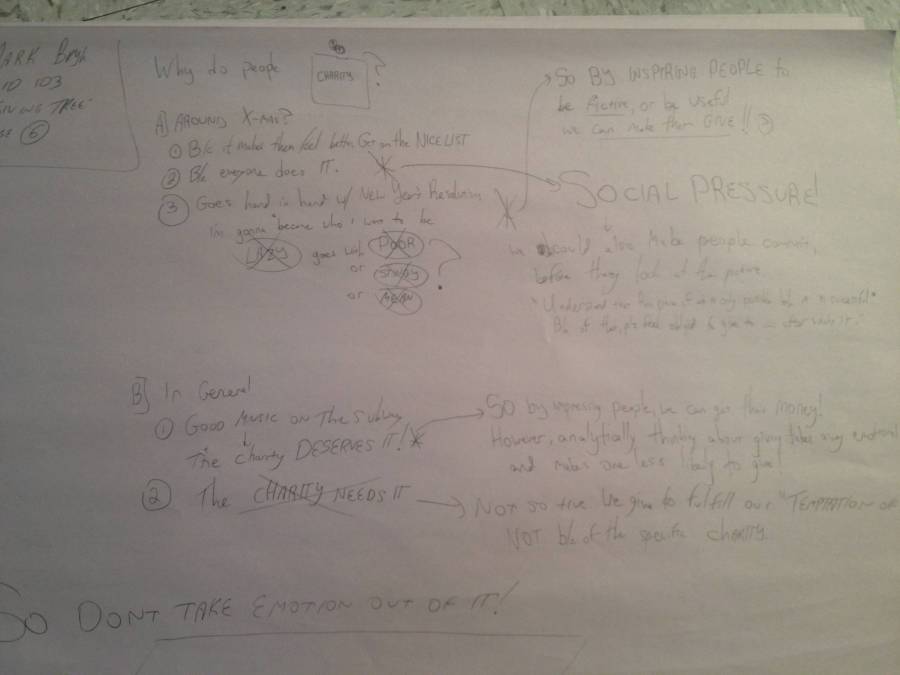 ARK
ID 103
GIVING TREE
6
Why do people CHARITY ?
A] AROUND X-MAS?
① B/c it makes them feel better, Get on the NICE LIST
② B/c everyone does IT.
③ Goes hand in hand w/ NEW YEAR'S Resolution
I'm gonna "become who I want to be
LAZY goes with POOR
or STINGY
or MEAN
?
SO BY INSPIRING PEOPLE to
be Active, or be useful
we can make them GIVE!!
SOCIAL PRESSURE!
we should also make people commit,
before they look at the picture.
"Understand
B/c of this, feel to give
B] In General
① GOOD MUSIC ON THE Subway
The charity DESERVES IT!
② The CHARITY NEEDS IT
SO by impressing people, we can get their money!
However, analytically thinking about giving takes away emotional
and makes one less likely to give!
NOT so true. We give to fulfill our "TEMPTATION OF
NOT b/c of the specific CHARITY.
SO DONT TAKE EMOTION OUT OF IT!